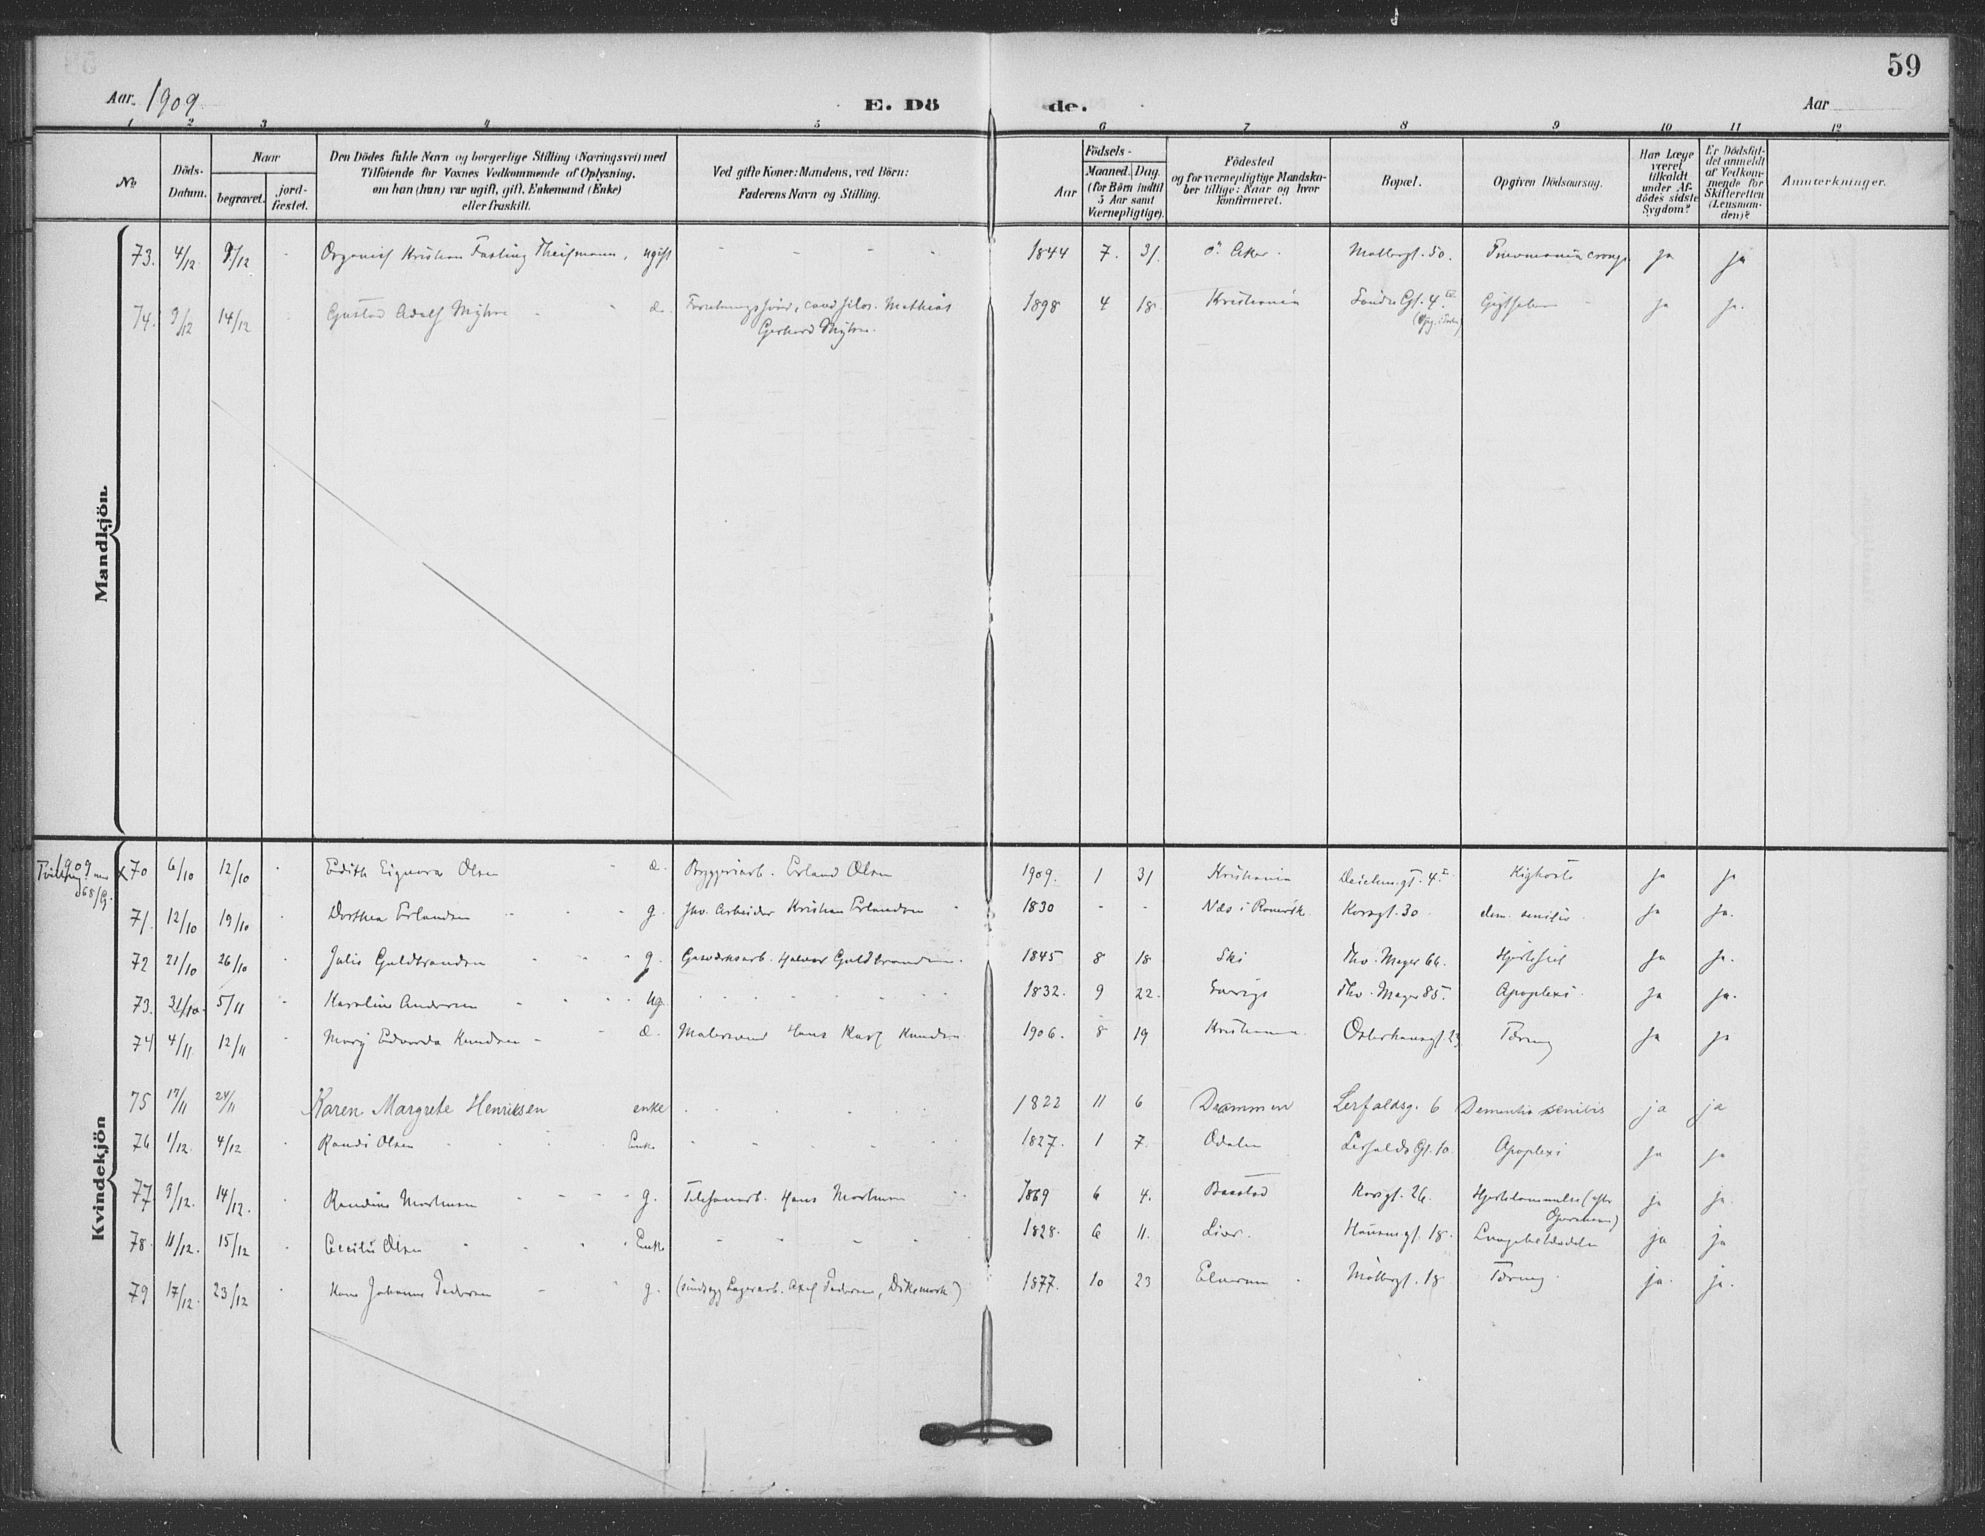 59
Aar. 1909
E. Dö de.
Aar
1 2 3 4 5 6 7 8 9 10 11 12
No.
Döds-Datum.
Naar
begravet.
jord-fæstet.
Den Dödes fulde Navn og borgerlige Stilling (Næringsvei) med
Tilföiende for Voxnes Vedkommende af Oplysning,
om han (hun) var ugift, gift, Enkemand (Enke)
eller fraskilt.
Ved gifte Koner: Mandens, ved Börn:
Faderens Navn og Stilling.
Aar
Födsels-
Maaned. Dag.
(for Börn indtil
5 Aar samt
Værnepligtige).
Födested
og for værnepligtige Mandska-
ber tillige: Naar og hvor
konfirmeret.
Bopæl.
Opgiven Dödsaarsag.
Har Læge
været
tilkaldt
under Af-
dödes sidste
Sygdom?
Er Dödsfal-
det anmeldt
af Vedkom-
mende for
Skifteretten
(Lensman-
den)?
Anmærkninger.
Mandkjön.
73. 4/12 9/12 Organist Kristian Fasting Theismann, ugift 1844 7. 31. Ö. Aker. Møllergt. 50. Pneumonia croup. ja ja
74. 9/12 14/12 Gustav Adolf Myhre d. cand. filos. Mathias 1898 4 18. Kristiania Söndre Gt. 4 ja ja.
Gerhard Myhre.
Kvindekjön
1909
Tvilling
70 6/10 12/10 Edith Signora Olsen d. Bryggeriarb. Erland Olsen 1909. 1 31 Kristiania Deichm.gt. 4 Kighoste ja ja
71. 12/10 19/10 Dorthea Erlandsen g. fhv. Arbeider Kristian Erlandsen 1830 - - Næs i Romerik. Korsgt. 30 dem. senilis. ja ja.
72 21/10 26/10 Julie Guldbrandsen g. Gasværksarb. Halvor Guldbrandsen. 1845 8 18 Ski Thv. Meyer 66. Hjertefeil ja ja.
73. 31/10. 5/11 Karoline Andersen ug. 1832. 9 22. Sverige Thv. Meyer 85. Apoplexi. ja ja.
74 4/11 12/11 Mary Edvarda Knudsen d. Malersvend Hans Karl Knudsen 1906. 8 19 Kristiania. Osterhausgt. 29 Tæring ja ja
75 17/11 24/11 Karen Margrete Henriksen enke 1822 11 6 Drammen Lerfaldsg. 6 Dementia senilis ja ja
76 1/12. 4/12 Randi Olsen Enke 1827. 1 7. Odalen Lerfalds Gt. 10. Apoplexi ja ja
77 9/12. 14/12. Randine Mortensen g. Telefonarb. Hans Mortensen 1869 6 4. Baastad Korsgt. 26. Hjertelammelse (efter ja ja.
Operation)
78. 11/12. 15/12 Cecilie Olsen Enke 1828. 6 11. Lier. Hausmgt. 18. Lungebetændelse ja ja
79 17/12. 23/12 Johanne Pedersen g. (Lagerarb. Axel Pedersen, Dikemark) 1877. 10 23 Elverum Møllergt. 18 Tæring. ja. ja.